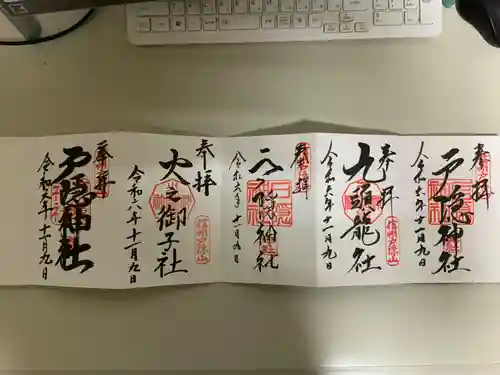 奉拝
戸隠神社
令和六年十一月九日
奉拝
九頭龍社
令和六年十一月九日
信州戸隠山
奉拝
令和六年十一月九日
奉拝
火之御子社
令和六年十一月九日
信州戸隠山
奉拝
戸隠神社
令和六年十一月九日